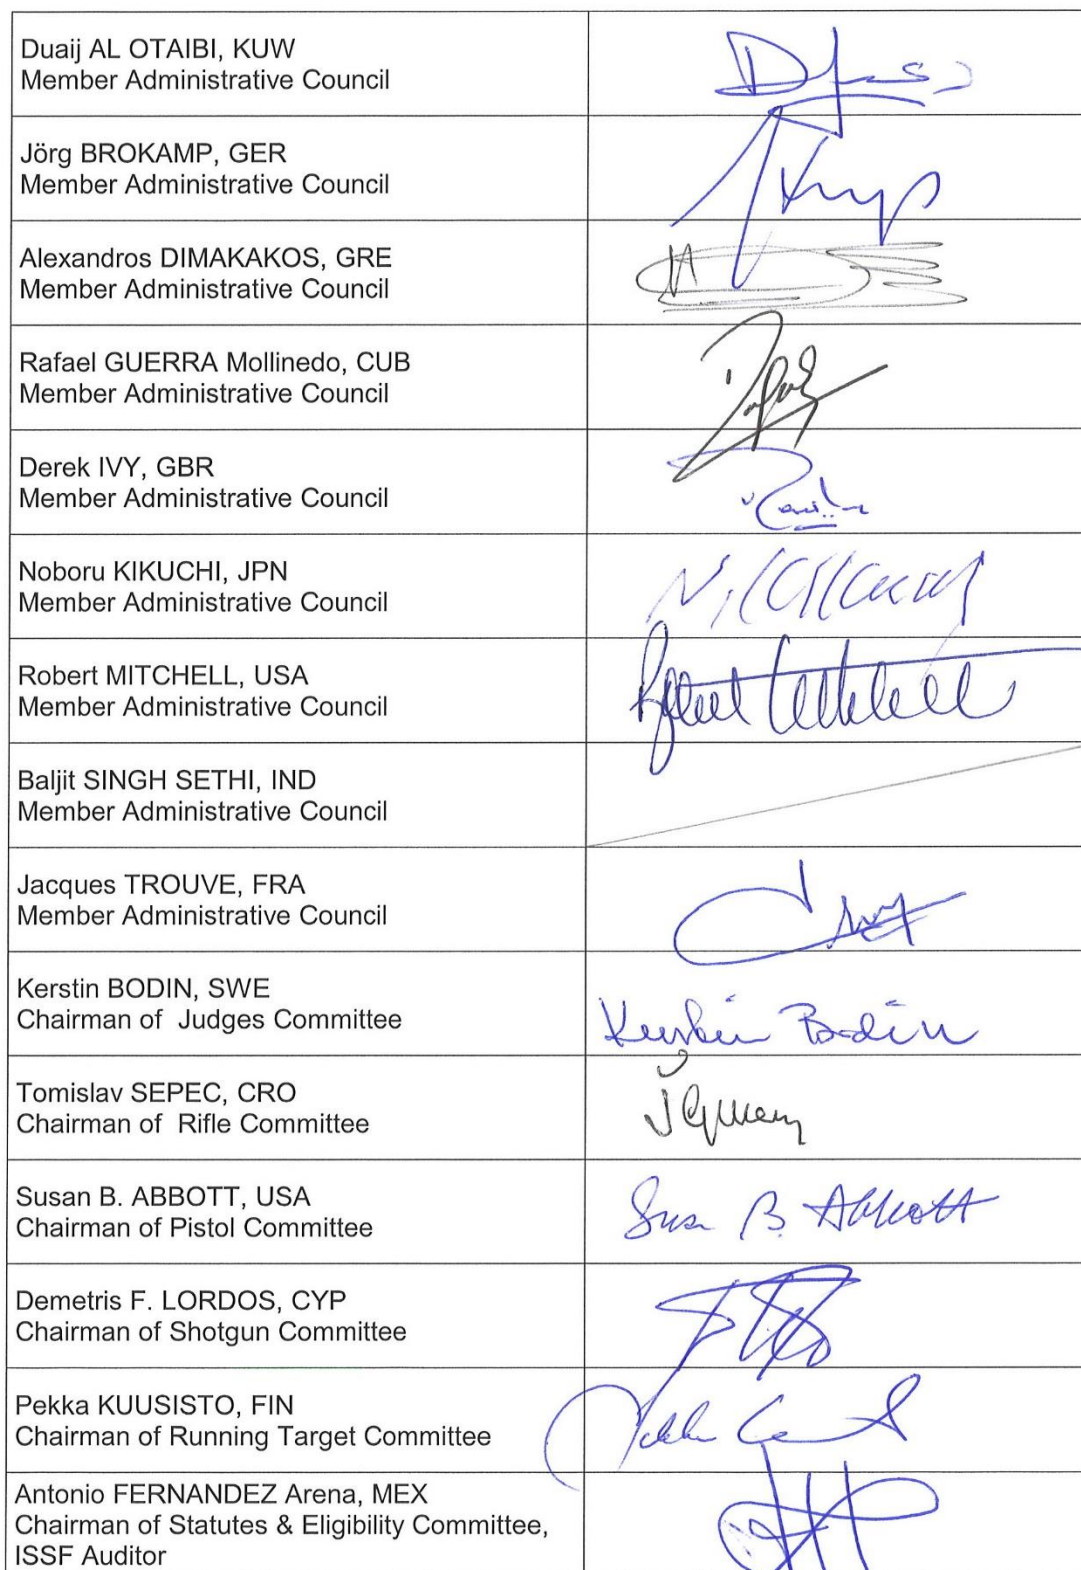 Duaij AL OTAIBI, KUW
Member Administrative Council
Jörg BROKAMP, GER
Member Administrative Council
Alexandros DIMAKAKOS, GRE
Member Administrative Council
Rafael GUERRA Mollinedo, CUB
Member Administrative Council
Derek IVY, GBR
Member Administrative Council
Noboru KIKUCHI, JPN
Member Administrative Council
Robert MITCHELL, USA
Member Administrative Council
Robert Mitchell
Baljit SINGH SETHI, IND
Member Administrative Council
Jacques TROUVE, FRA
Member Administrative Council
Kerstin BODIN, SWE
Chairman of Judges Committee
Kerstin Bodin
Tomislav SEPEC, CRO
Chairman of Rifle Committee
Susan B. ABBOTT, USA
Chairman of Pistol Committee
Susan B. Abbott
Demetris F. LORDOS, CYP
Chairman of Shotgun Committee
Pekka KUUSISTO, FIN
Chairman of Running Target Committee
Antonio FERNANDEZ Arena, MEX
Chairman of Statutes & Eligibility Committee,
ISSF Auditor